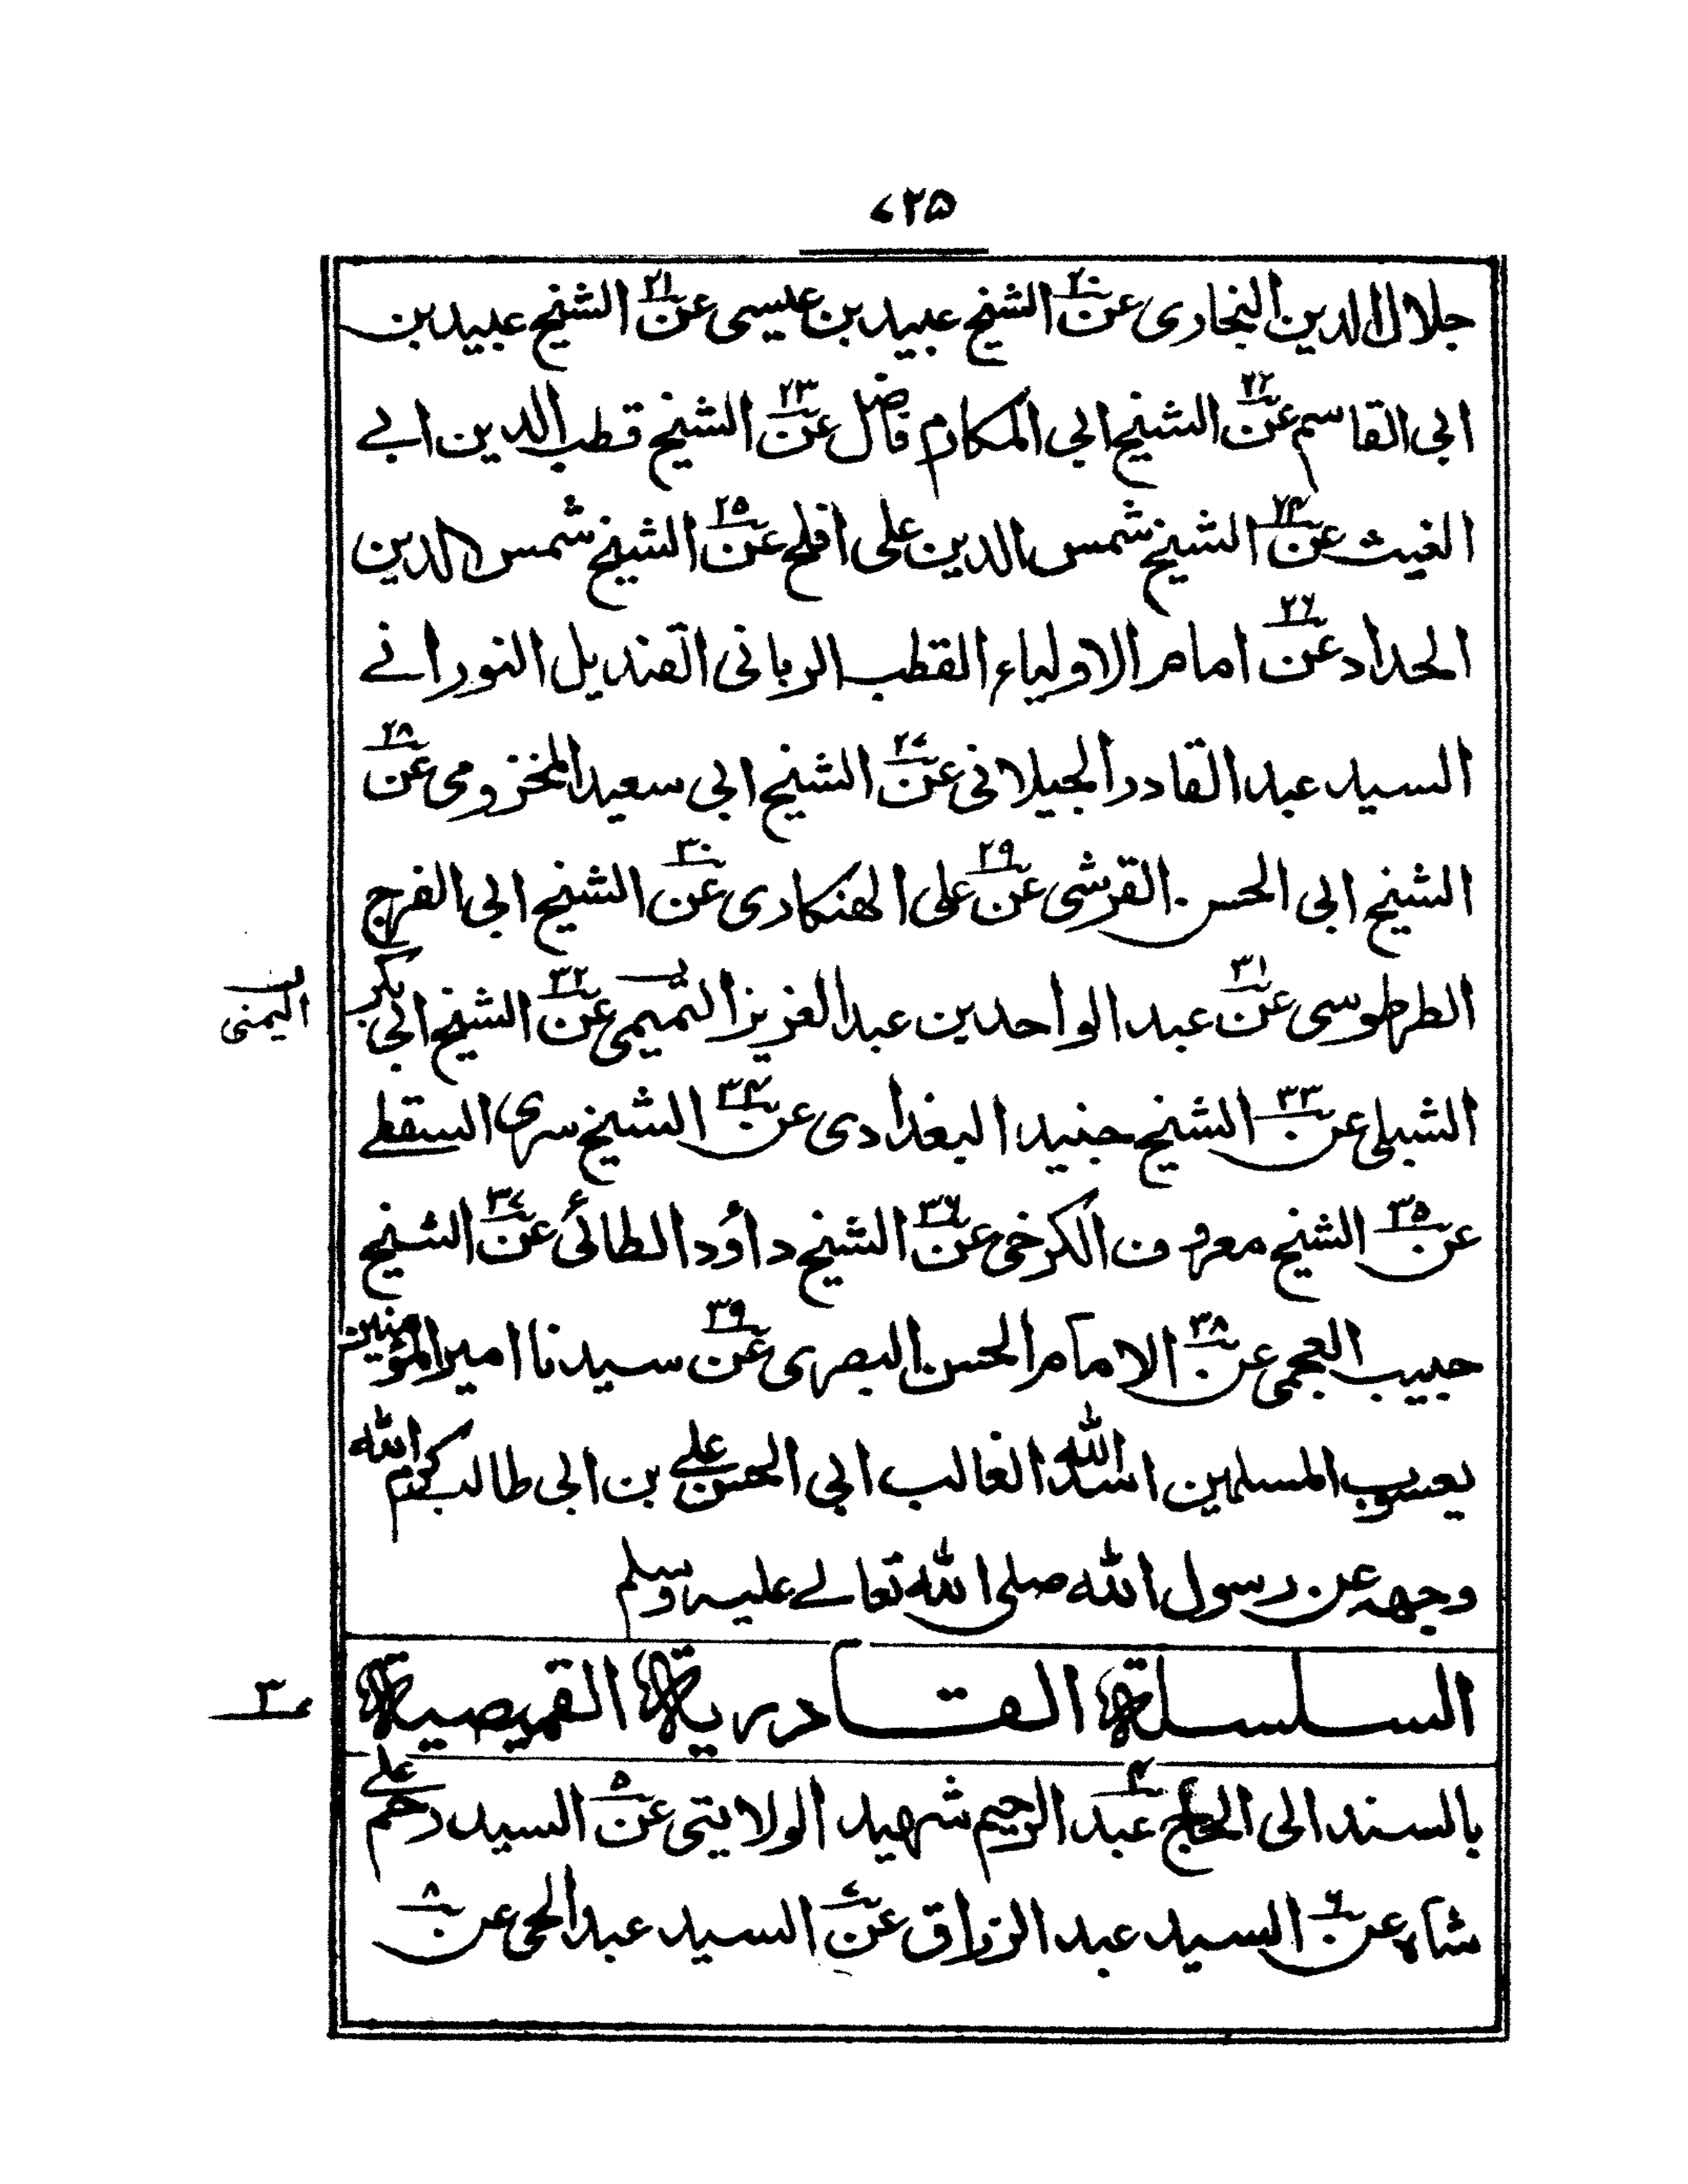 ۷۲۵
جلال الدین البخاری عن۲۰ الشیخ عبید بن عیسی عن۲۱ الشیخ عبید بن
ابی القاسم عن۲۲ الشیخ ابی المکارم فاضل عن۲۳ الشیخ قطب الدین ابے
الغیث عن۲۴ الشیخ شمس الدین علی افلح عن۲۵ الشیخ شمس الدین
الحداد عن۲۶ امام الاولیاء القطب الربانی القندیل النورانے
السید عبد القادر الجیلانی عن۲۷ الشیخ ابی سعید المخزومی عن۲۸
الشیخ ابی الحسن القرشی عن۲۹ علی الهنکاری عن۳۰ الشیخ ابی الفرج
الطرطوسی عن۳۱ عبد الواحد بن عبد العزیز التمیمی عن۳۲ الشیخ ابی بکر
الیمنی
الشبلی عن۳۳ الشیخ جنید البغدادی عن۳۴ الشیخ سری السقطے
عن۳۵ الشیخ معروف الکرخی عن۳۶ الشیخ داؤد الطائی عن۳۷ الشیخ
حبیب العجمی عن۳۸ الامام الحسن البصری عن۳۹ سیدنا امیر المؤمنین
یعسوب المسلمین اسد الله الغالب ابی الحسن علے بن ابی طالب کرم الله
وجهه عن رسول الله صلی الله تعالے علیه وسلم
السلسلة القادریة القمیصیة
۳
بالسند الی الحاج عبد۴ الرحیم شهید الولایتی عن۵ السید رحم علے
شاه عن۶ السید عبد الرزاق عن۷ السید عبد الحی عن۸